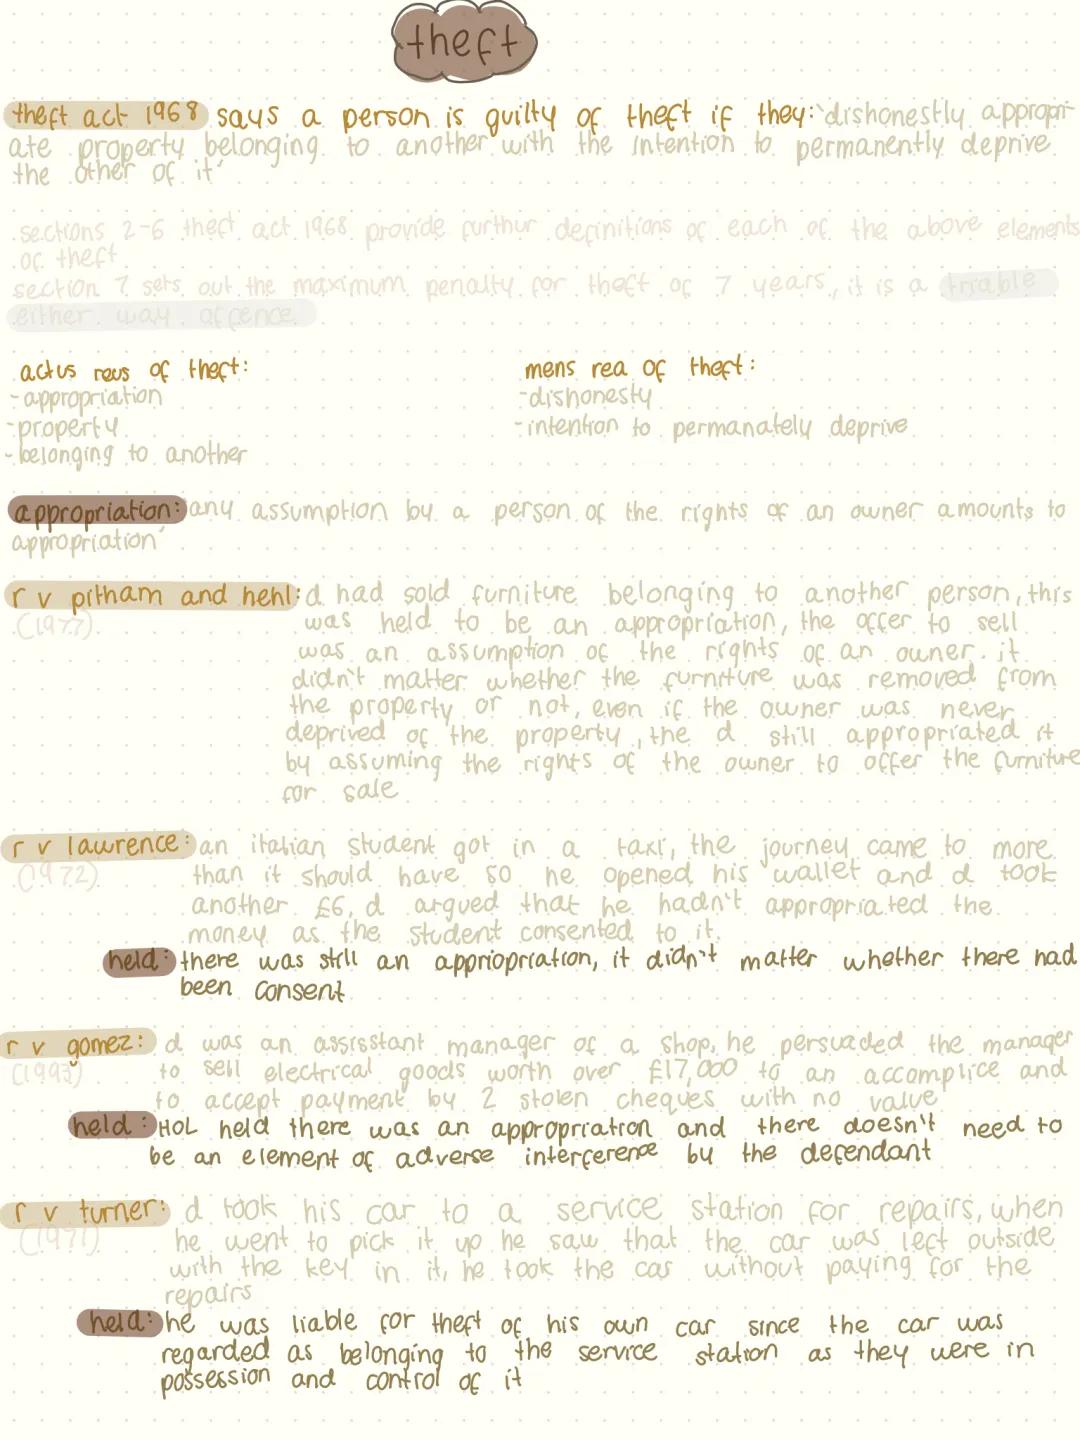 theft
theft act 1968 says a person is guilty of theft if they: 'dishonestly appropri-
ate property belonging to another with the intention to permanently deprive
the other of it'
sections 2-6 theft act 1968 provide furthur definitions of each of the above elements
of theft
section 7 sets out the maximum penalty for theft of 7 years, it is a triable
either way offence
actus reus of theft:
-appropriation
-property
-belonging to another
mens rea of theft:
-dishonesty
-intention to permanately deprive
appropriation: 'any assumption by a person of the rights of an owner amounts to
appropriation'
r v pitham and hehl: d had sold furniture belonging to another person, this
(1977) was held to be an appropriation, the offer to sell
was an assumption of the rights of an owner. it
didn't matter whether the furniture was removed from
the property or not, even if the owner was never
deprived of the property, the d still appropriated it
by assuming the rights of the owner to offer the furniture
for sale
r v lawrence: an italian student got in a taxi, the journey came to more
(1972) than it should have so he opened his wallet and d took
another £6, d argued that he hadn't appropriated the
money as the student consented to it.
held: there was still an appriopriation, it didn't matter whether there had
been consent
r v gomez: d was an assistant manager of a shop, he persuaded the manager
(1993) to sell electrical goods worth over £17,000 to an accomplice and
to accept payment by 2 stolen cheques with no value
held: HOL held there was an appropriation and there doesn't need to
be an element of adverse interference by the defendant
r v turner: d took his car to a service station for repairs, when
(1971) he went to pick it up he saw that the car was left outside
with the key in it, he took the car without paying for the
repairs
held: he was liable for theft of his own car since the car was
regarded as belonging to the service station as they were in
possession and control of it